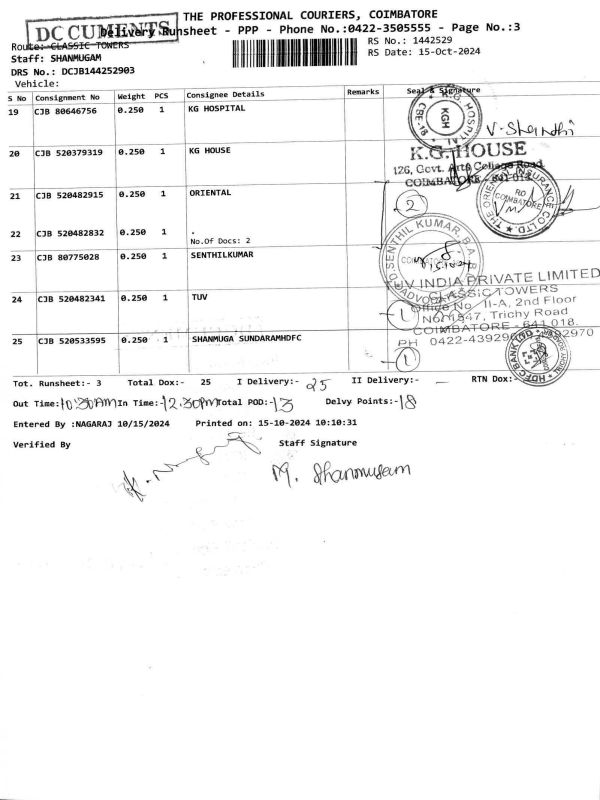 THE PROFESSIONAL COURIERS, COIMBATORE
DCCUMENTS
Delivery Runsheet - PPP - Phone No.:0422-3505555 - Page No.:3
Route: CLASSIC TOWERS
RS No.: 1442529
Staff: SHANMUGAM
RS Date: 15-Oct-2024
DRS No.: DCJB144252903
Vehicle:
S No Consignment No Weight PCS Consignee Details Remarks Seal & Signature
19 CJB 80646756 0.250 1 KG HOSPITAL
K.G. HOSPITAL
KGH
CBE-18
V. Shanthi
20 CJB 520379319 0.250 1 KG HOUSE
K.G. HOUSE
126, Govt. Arts College Road
COIMBATORE - 641 018
21 CJB 520482915 0.250 1 ORIENTAL
2
THE ORIENTAL INSURANCE CO LTD.
RO
COIMBATORE
22 CJB 520482832 0.250 1 .
No.Of Docs: 2
23 CJB 80775028 0.250 1 SENTHILKUMAR
SENTHIL KUMAR, B.A.B.L.
ADVOCATE
24 CJB 520482341 0.250 1 TUV
TUV INDIA PRIVATE LIMITED
CLASSIC TOWERS
Office No. II-A, 2nd Floor
No. 1547, Trichy Road
COIMBATORE - 641 018.
1
25 CJB 520533595 0.250 1 SHANMUGA SUNDARAMHDFC
PH 0422-439296
1
HDFC BANK
Tot. Runsheet:- 3 Total Dox:- 25 I Delivery:- 25 II Delivery:- — RTN Dox:-
Out Time: 10:30AM In Time:- 12.30PM Total POD:- 13 Delvy Points:- 18
Entered By :NAGARAJ 10/15/2024 Printed on: 15-10-2024 10:10:31
Verified By Staff Signature
M. Shanmugam